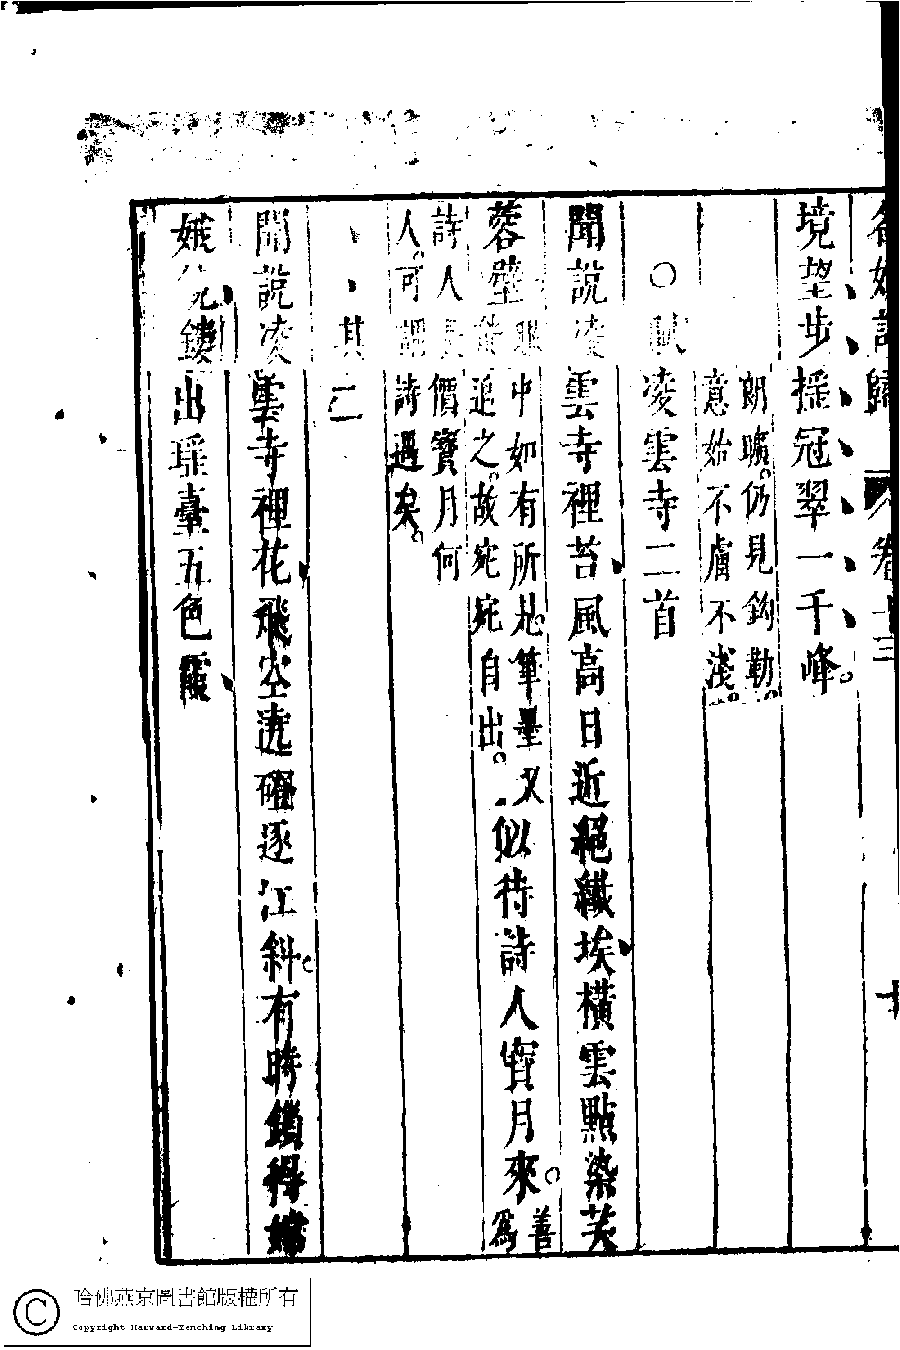 名媛詩歸 卷十三 十
境望步搖冠翠一千峰。
朗曠。仍見鉤勒。
意始不膚不淺。
○賦凌雲寺二首
聞說凌雲寺裡苔風高日近絕纖埃橫雲點染芙
蓉壁
眼中如有所是。筆墨又
追之。故宛宛自出。
似待詩人寶月來。
善
為
詩人長價寶月何
人。可謂詩遇矣。
其二
聞說凌雲寺裡花飛空遶磴逐江斜。有時鎖得嫦
娥鏡鏤出瑤臺五色霞
哈佛燕京圖書館版權所有
Copyright Harvard-Yenching Library